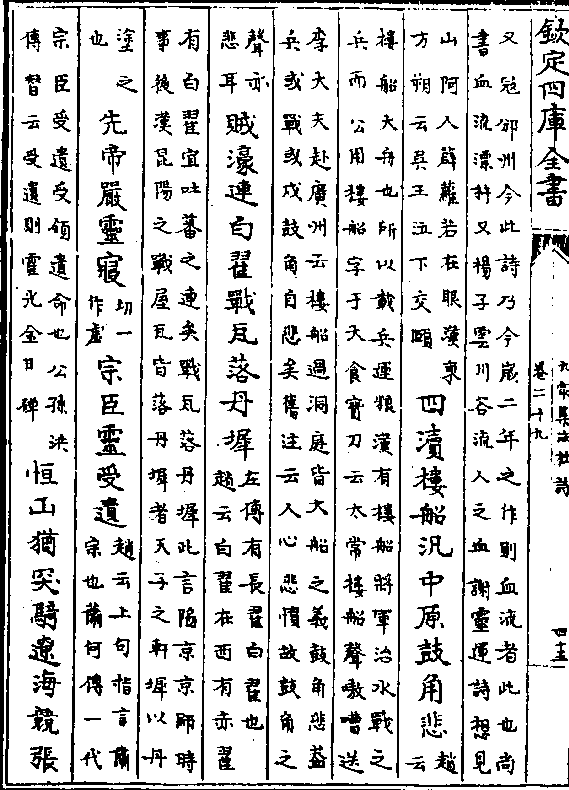 欽定四庫全書
九家集注杜詩
卷二十九
又寇邠州今此詩乃今嵗二年之作則血流者此也尚
書血流漂杵又楊子雲川谷流人之血謝靈運詩想見
山阿人薜蘿若在眼漢東
方朔云吳王泣下交頤
四瀆樓船汎中原鼓角悲
趙
云
樓船大舟也所以載兵運糧漢有樓船將軍治水戰之
兵而公用樓船字于大食寳刀云太常樓船聲嗷嘈送
李大夫赴廣州云樓船過洞庭皆大船之義鼓角悲蓋
兵或戰或戍鼓角自悲矣舊注云人心悲憤故鼓角之
聲亦
悲耳
賊濠連白翟戰瓦落丹墀
左傳有長翟白翟也
趙云白翟在西有赤翟
有白翟宜吐蕃之連矣戰瓦落丹墀此言陷京京師時
事後漢昆陽之戰屋瓦皆落丹墀者天子之軒墀以丹
塗之
也
先帝嚴靈寢
切一
作虛
宗臣靈受遺
趙云上句指言肅
宗也蕭何傳一代
宗臣受遺受領遺命也公孫洪
傳贊云受遺則霍光金日磾
恒山猶突騎遼海競張